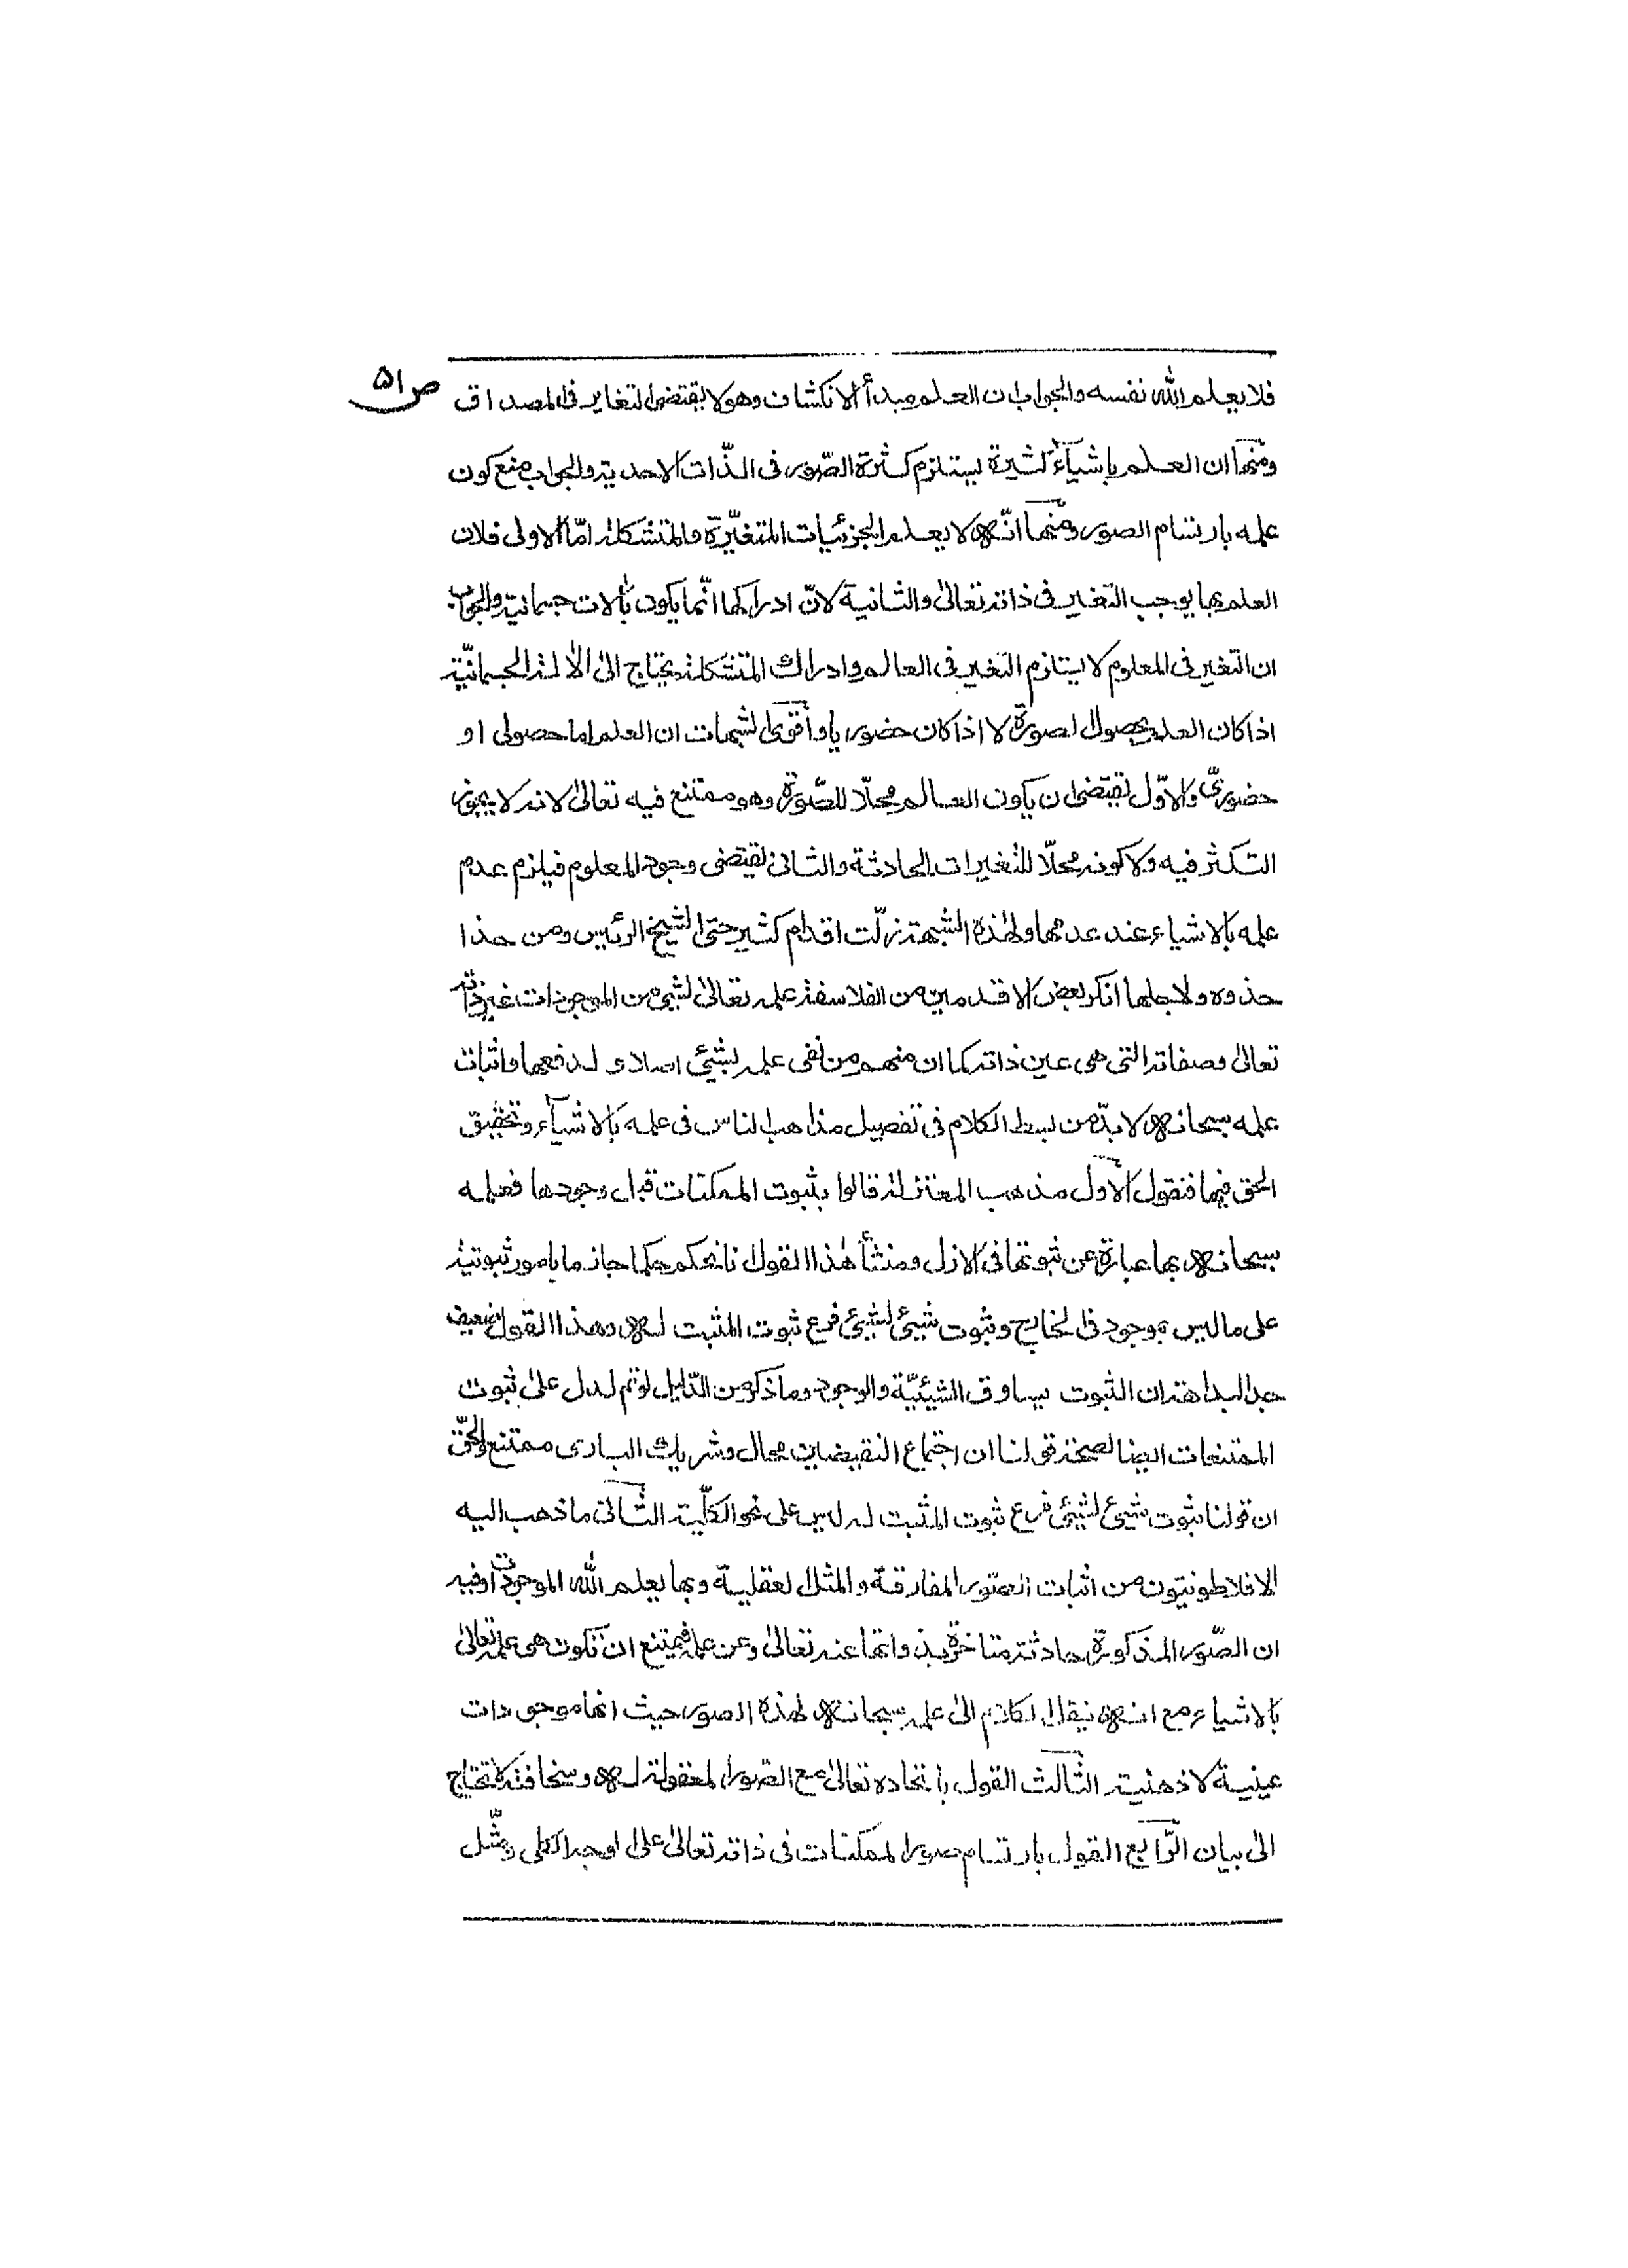 ص ۵۱
فلا يعلم الله نفسه والجواب ان العلم مبدأ الانكشاف وهو لا يقتضى التغاير فى المصداق
ومنها ان العلم باشيآء كثيرة يستلزم كثرة الصّور فى الذّات الاحدية والجواب منع كون
علمه بارتسام الصور ومنها انّه لا يعلم الجزئيات المتغيّرة والمتشكلة امّا الاولى فلان
العلم بها يوجب التغير فى ذاته تعالىٰ والثانية لانّ ادراكها انّما يكون بآلات جسمانية والجواب
ان التغير فى المعلوم لا يستلزم التغير فى العالم وادراك المتشكلة يحتاج الى الآلة الجسمانيّة
اذا كان العلم بحصول الصورة لا اذا كان حضوريا واقوى الشبهات ان العلم اما حصولى او
حضورىّ والاوّل يقتضى ان يكون العالم محلّا للصّورة وهو ممتنع فيه تعالىٰ لانه لا يجوز
التكثر فيه ولا كونه محلّا للتغيرات الحادثة والثانى يقتضى وجود المعلوم فيلزم عدم
علمه بالاشياء عند عدمها ولهٰذه الشبهة زلّت اقدام كثير حتى الشيخ الرئيس ومن حذا
حذوه ولاجلها انكر بعض الاقدمين من الفلاسفة علمه تعالىٰ لشيئ من الموجودات غير ذاته
تعالىٰ وصفاته التى هى عين ذاته كما ان منهم من نفى علمه بشيئ اصلا و لدفعها واثبات
علمه سبحانه لا بدّ من بسط الكلام فى تفصيل مذاهب الناس فى علمه بالاشيآء وتحقيق
الحق فيها فنقول الاول مذهب المعتزلة قالوا بثبوت الممكنات قبل وجودها فعلمه
سبحانه بها عبارة عن ثبوتها فى الازل ومنشأ هٰذا القول انا نحكم حكما جازما بامور ثبوتية
على ما ليس بموجود فى الخارج وثبوت شيئ لشيئ فرع ثبوت المثبت له وهذا القول ضعيف
جدا لبداهة ان الثبوت يساوق الشيئيّة والوجود وما ذكر من الدّليل لو تم لدل علىٰ ثبوت
الممتنعات ايضا لصحة قولنا ان اجتماع النقيضين محال وشريك البارى ممتنع والحقّ
ان قولنا ثبوت شيئ لشيئ فرع ثبوت المثبت له ليس على نحو الكلّية الثانى ما ذهب اليه
الافلاطونيّون من اثبات الصّور المفارقة والمثل العقلية وبها يعلم الله الموجودات وفيه
ان الصّور المذكورة حادثة متاخرة بذواتها عنه تعالىٰ وعن علمه فيمتنع ان تكون هى علمه تعالىٰ
بالاشياء مع انه ينقل الكلام الىٰ علمه سبحانه لهٰذه الصور حيث انها موجودات
عينية لا ذهنية الثالث القول باتحاده تعالىٰ مع الصّور المعقولة له وسخافته لا تحتاج
الىٰ بيان الرّابع القول بارتسام صور الممكنات فى ذاته تعالىٰ على الوجه الكلى ومثّل